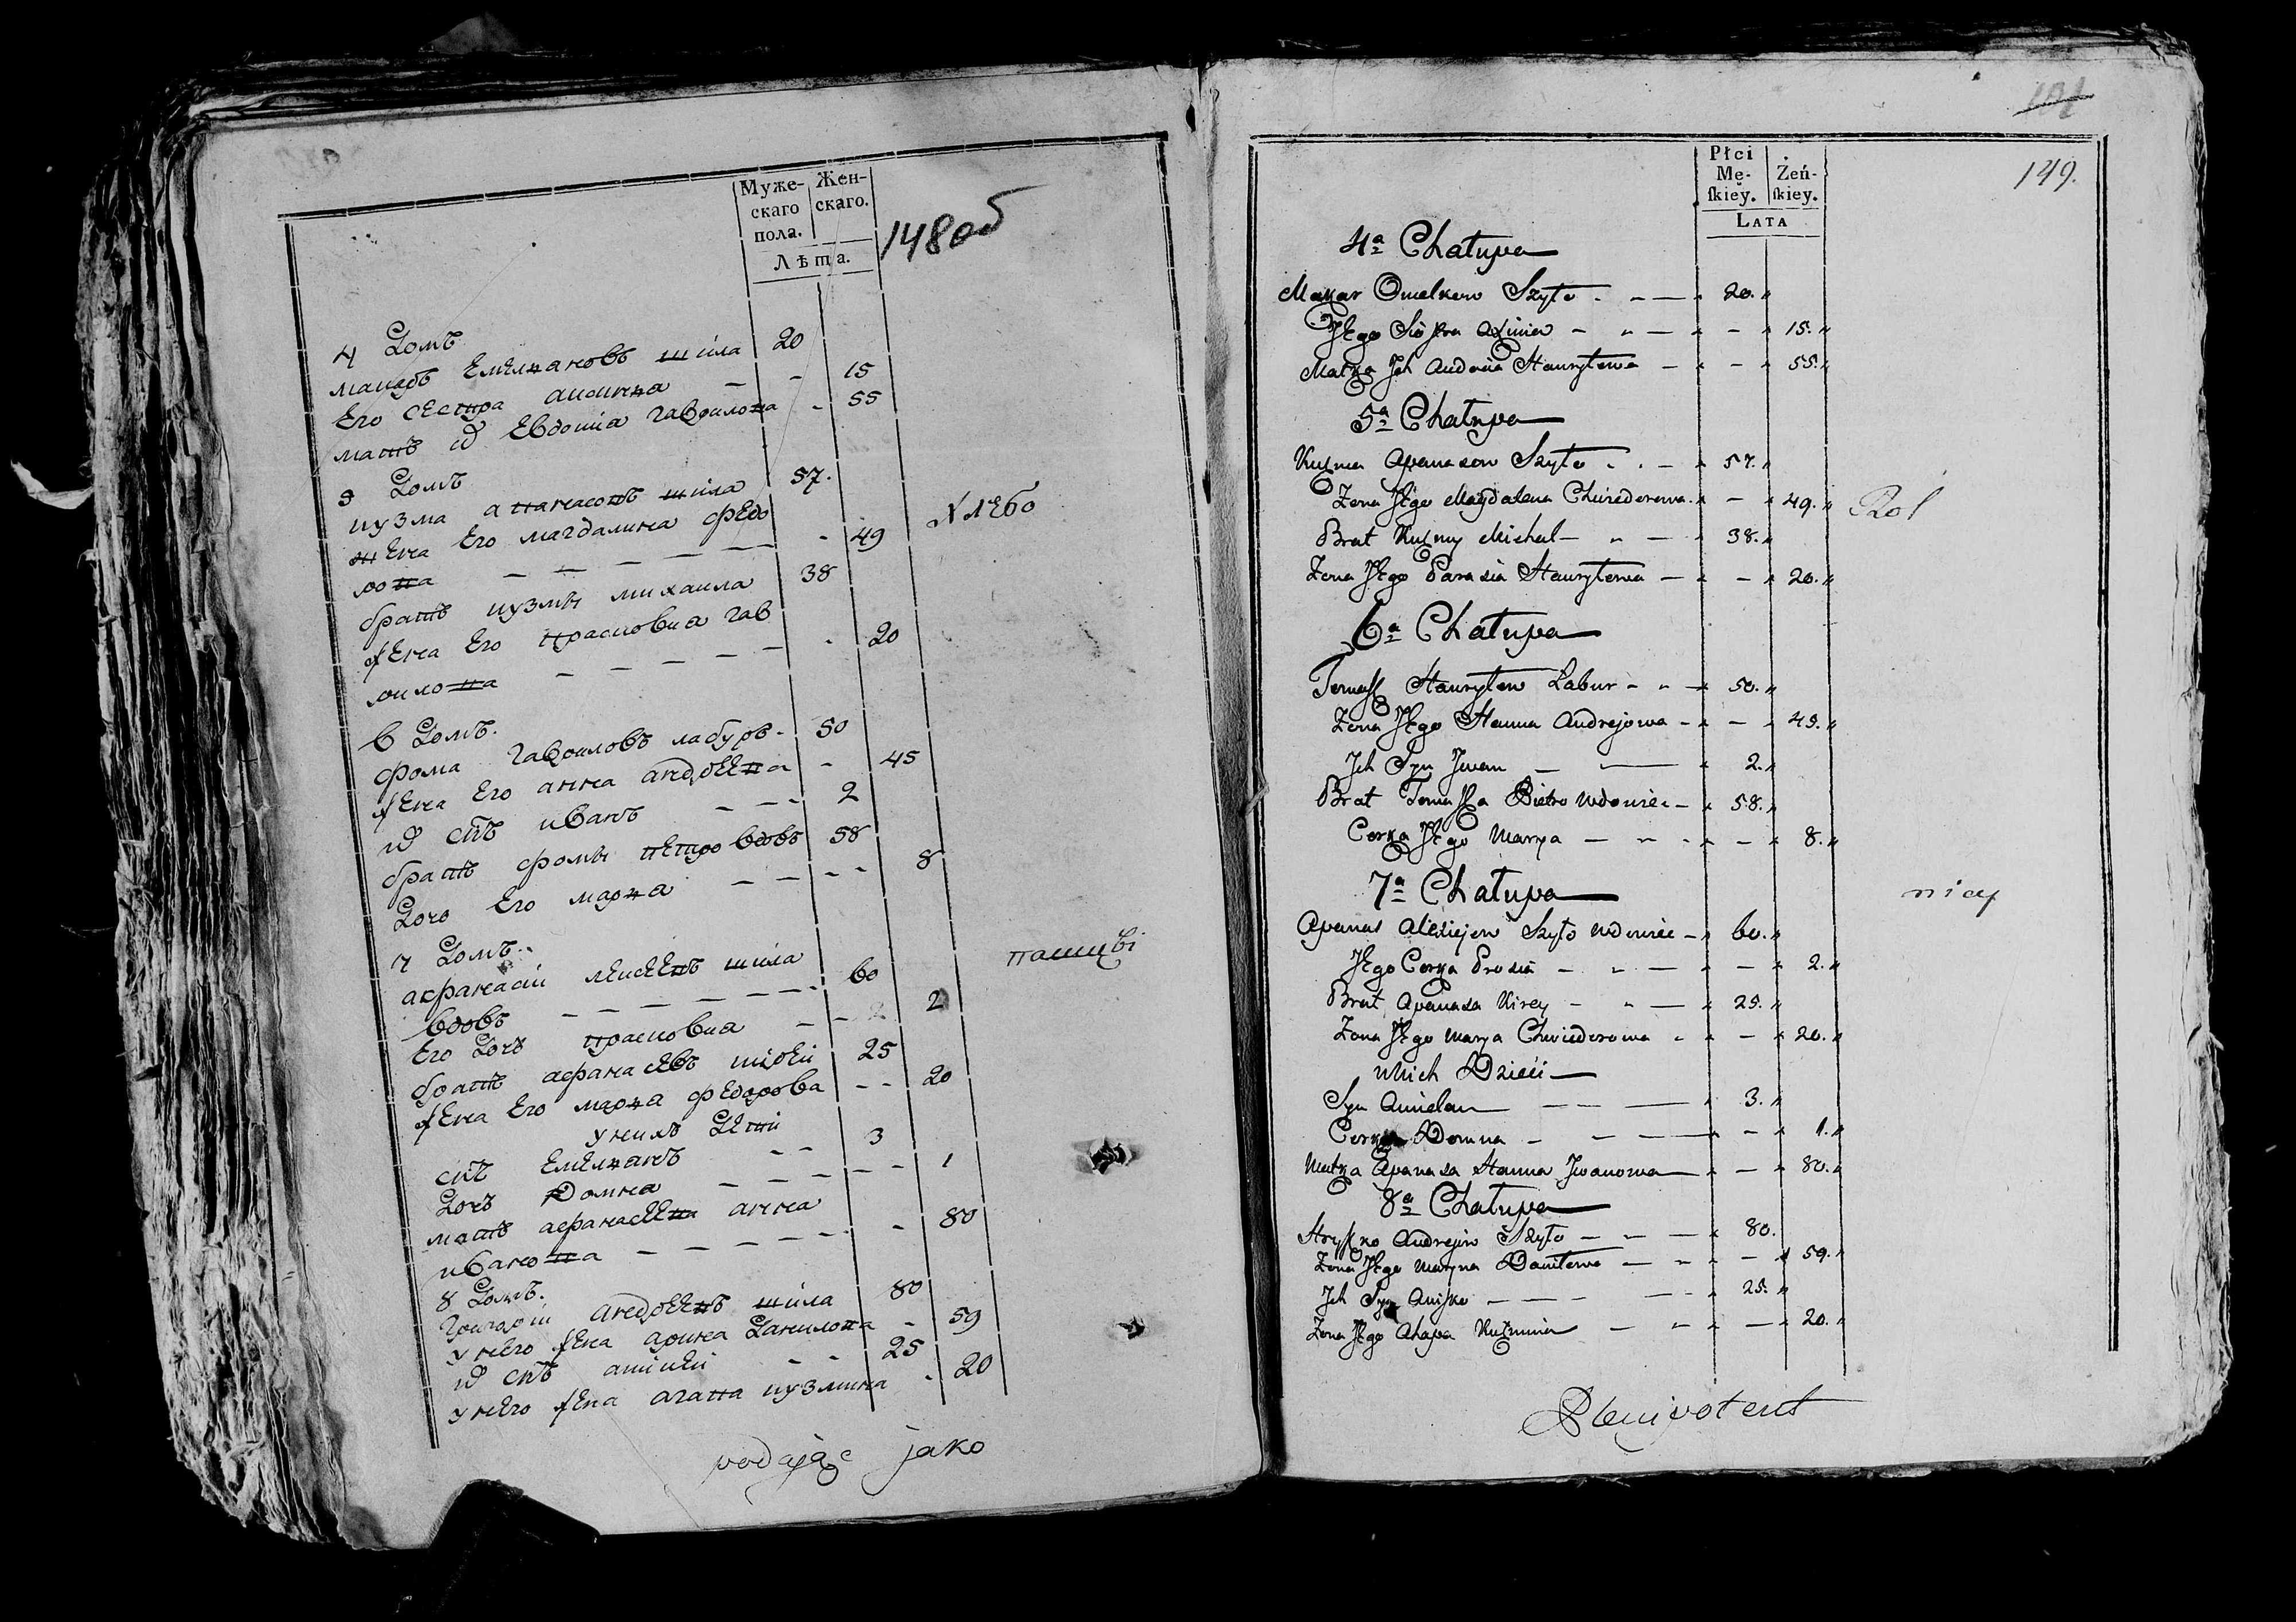 Муже-
скаго
пола.
Жен-
скаго.
Лѣта.
148 об
4 Домъ
макаръ Емельяновъ шила 20
Его сестра аксинья — - 15
мать их Евдокиа гаврилова - 55
5 Домъ
кузма апанасовъ шила 57.
жена Его магдалина федо
рова — — — — - 49
братъ кузмы михаила 38
жена Его прасковиа гав
рилова — — — — - 20
6 Домъ.
фома гавриловъ лабуръ - 50
жена Его анна андреева - 45
их снъ иванъ — — - 2
братъ фомы петро вдовъ 58
Дочь Его марья — — - - 8
7 Домъ.
афанасій лексеевъ шила
вдовъ — — — — — - 60
Его Дочь прасковиа — — 2
братъ афанасевъ кирей 25
жена Его марья федорова - - 20
у них Дети
снъ Емельянъ - - 3
Дочь Домна — — — - - 1
мать афанасева анна
иванова — — — — - - 80
8 Домъ.
григорій андреевъ шила 80
у него жена арина Данилова - 59
их снъ аникей - - 25
у него жена агапа кузмина - 20
Хлебо
пашцы
podając jako
149.
Płci
Mę-
skiey.
Żeń-
skiey.
LATA
4ª Chałupa
Makar Omelkow Szyło 20.
Jego Siostra Axinia 15.
Matka Jch Audocia Hauryłowa 55.
5ª Chałupa
Kuzma Apanasow Szyło 57.
Zona Jego Magdalena Chwiedorowa 49.
Brat Kuzmy Michał 38.
Zona Jego Parasia Hauryłowa 20.
6ª Chałupa
Tomasz Hauryłow Łabur 50.
Zona Jego Hanna Andrejowa 45.
Jch Syn Jwan 2.
Brat Tomasza Pietro Wdowiec 58.
Corka Jego Marya 8.
7ª Chałupa
Apanas Alexiejew Szyło Wdowiec 60.
Jego Corka Prosia 2.
Brat Apanasa Kirey 25.
Zona Jego Marya Chwiedorowa 20.
u Nich Dzieci
Syn Amielan 3.
Corka Domna 1.
Matka Apanasa Hanna Jwanowa 80.
8ª Chałupa
Hryszko Andrejew Szyło 80.
Zona Jego Maryna Daniłowa 59.
Jch Syn Anisko 25.
Zona Jego Ahapa Kuźmina 20.
Rol
nicy
Plenipotent